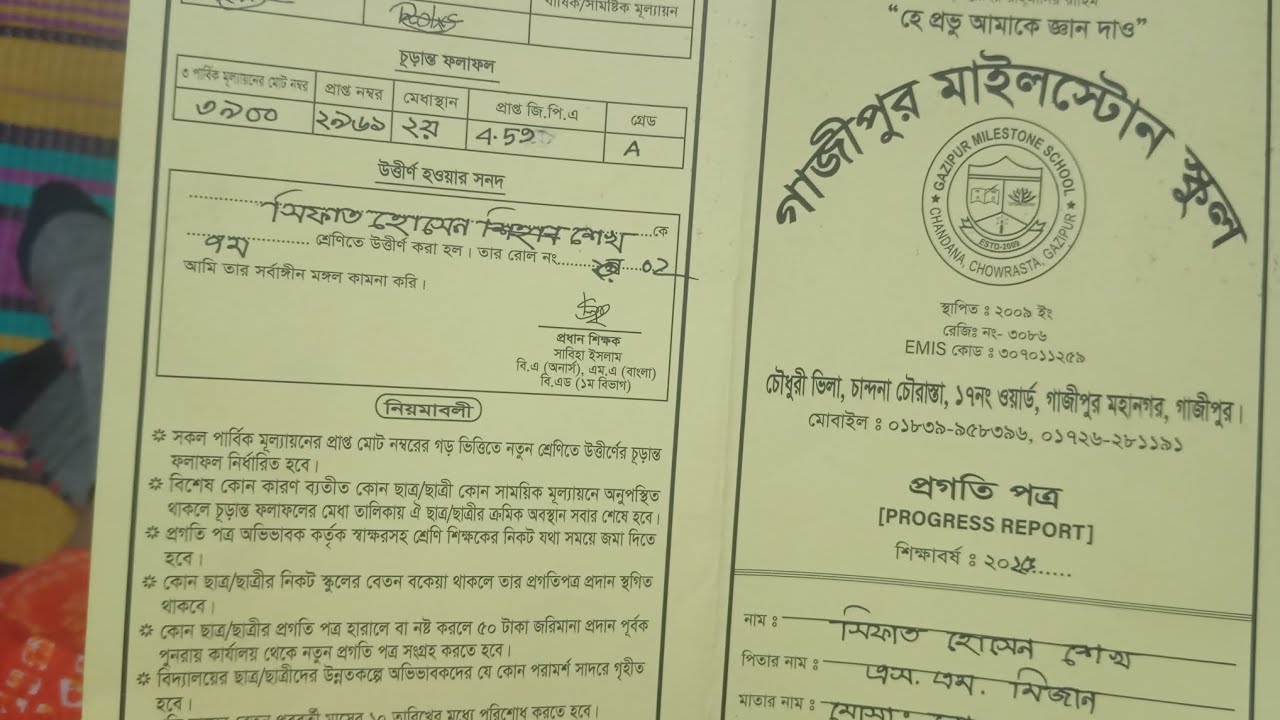 বার্ষিক/সামষ্টিক মূল্যায়ন
চূড়ান্ত ফলাফল
৩ পার্বিক মূল্যায়নের মোট নম্বর প্রাপ্ত নম্বর মেধাস্থান প্রাপ্ত জি.পি.এ গ্রেড
৩৯০০ ২৯৬৯ ২য় 4.59 A
উত্তীর্ণ হওয়ার সনদ
সিফাত হোসেন শিহাব শেখ কে
৭ম শ্রেণিতে উত্তীর্ণ করা হল। তার রোল নং 02
আমি তার সর্বাঙ্গীন মঙ্গল কামনা করি।
প্রধান শিক্ষক
সাবিহা ইসলাম
বি.এ (অনার্স), এম.এ (বাংলা)
বি.এড (১ম বিভাগ)
নিয়মাবলী
❋ সকল পার্বিক মূল্যায়নের প্রাপ্ত মোট নম্বরের গড় ভিত্তিতে নতুন শ্রেণিতে উত্তীর্ণের চূড়ান্ত
ফলাফল নির্ধারিত হবে।
❋ বিশেষ কোন কারণ ব্যতীত কোন ছাত্র/ছাত্রী কোন সাময়িক মূল্যায়নে অনুপস্থিত
থাকলে চূড়ান্ত ফলাফলের মেধা তালিকায় ঐ ছাত্র/ছাত্রীর ক্রমিক অবস্থান সবার শেষে হবে।
❋ প্রগতি পত্র অভিভাবক কর্তৃক স্বাক্ষরসহ শ্রেণি শিক্ষকের নিকট যথা সময়ে জমা দিতে
হবে।
❋ কোন ছাত্র/ছাত্রীর নিকট স্কুলের বেতন বকেয়া থাকলে তার প্রগতিপত্র প্রদান স্থগিত
থাকবে।
❋ কোন ছাত্র/ছাত্রীর প্রগতি পত্র হারালে বা নষ্ট করলে ৫০ টাকা জরিমানা প্রদান পূর্বক
পুনরায় কার্যালয় থেকে নতুন প্রগতি পত্র সংগ্রহ করতে হবে।
❋ বিদ্যালয়ের ছাত্র/ছাত্রীদের উন্নতকল্পে অভিভাবকদের যে কোন পরামর্শ সাদরে গৃহীত
হবে।
১০ তারিখের মধ্যে পরিশোধ করতে হবে।
“হে প্রভু আমাকে জ্ঞান দাও”
গাজীপুর মাইলস্টোন স্কুল
GAZIPUR MILESTONE SCHOOL
ESTD-2009
CHANDANA, CHOWRASTA, GAZIPUR
স্থাপিত : ২০০৯ ইং
রেজিঃ নং- ৩০৮৬
EMIS কোড : ৩০৭০১১২৫৯
চৌধুরী ভিলা, চান্দনা চৌরাস্তা, ১৭নং ওয়ার্ড, গাজীপুর মহানগর, গাজীপুর।
মোবাইল : ০১৮৩৯-৯৫৮৩৯৬, ০১৭২৬-২৮১১৯১
প্রগতি পত্র
[PROGRESS REPORT]
শিক্ষাবর্ষ : ২০২৫
নাম : সিফাত হোসেন শেখ
পিতার নাম : এস. এম. মিজান
মাতার নাম : মোসা: